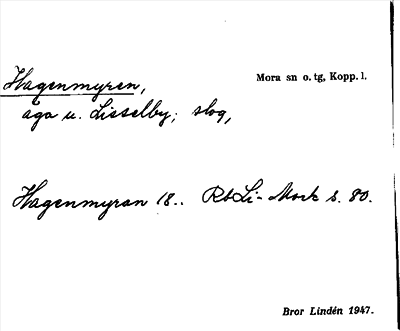 Hagenmyren, Mora sn o. tg, Kopp. l.
äga u. Lisselby; slog,
Hagenmyran 18.. RbLi-Mork s. 80.
Bror Lindén 1947.